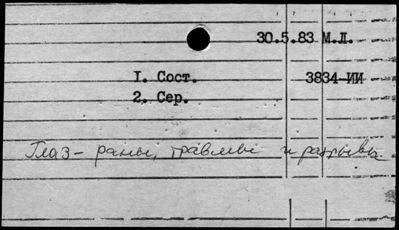 30.5.83 М.Л.
1. Сост. 3834-ИИ
2. Сер.
Глаз - раны, травмы и разрывы